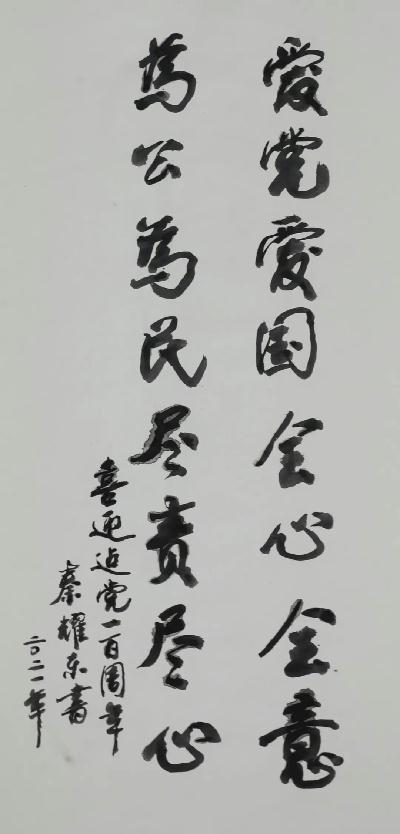 愛党愛国全心全意
為公為民尽责尽心
喜迎迠党一百周年
秦耀东書
二〇二一年